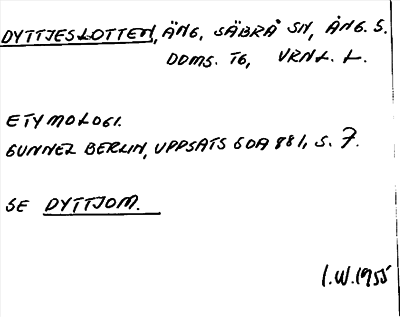 DYTTJESLOTTEN, ÄNG, SÄBRÅ SN, ÅNG. S.
DOMS. TG, VRNL. L.
ETYMOLOGI.
GUNNEL BERLIN, UPPSATS GDA 881, S. 7.
SE DYTTJOM.
I.W.1955